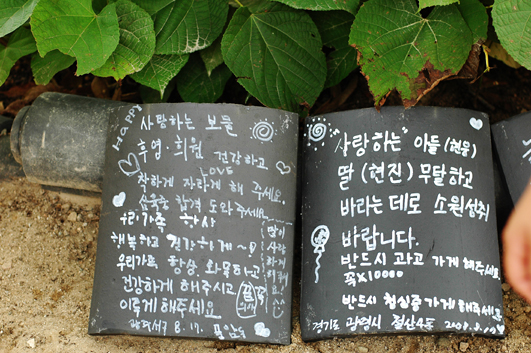 Happy
사랑하는 보물
후영·희원 건강하고
Love
착하게 자라게 해 주세요.
합격 도와주세요
우리가족 항상
행복하고 건강하게~!
우리가족 항상 화목하고
건강하게 해주시고
이렇게 해주세요
8.17.
"사랑하는" 아들(현우)
딸(현진) 무탈하고
바라는 데로 소원성취
바랍니다.
반드시 과고 가게 해주세요.
꼭x10000
반드시 청심중가게 해주세요.
경기도 광명시 철산4동